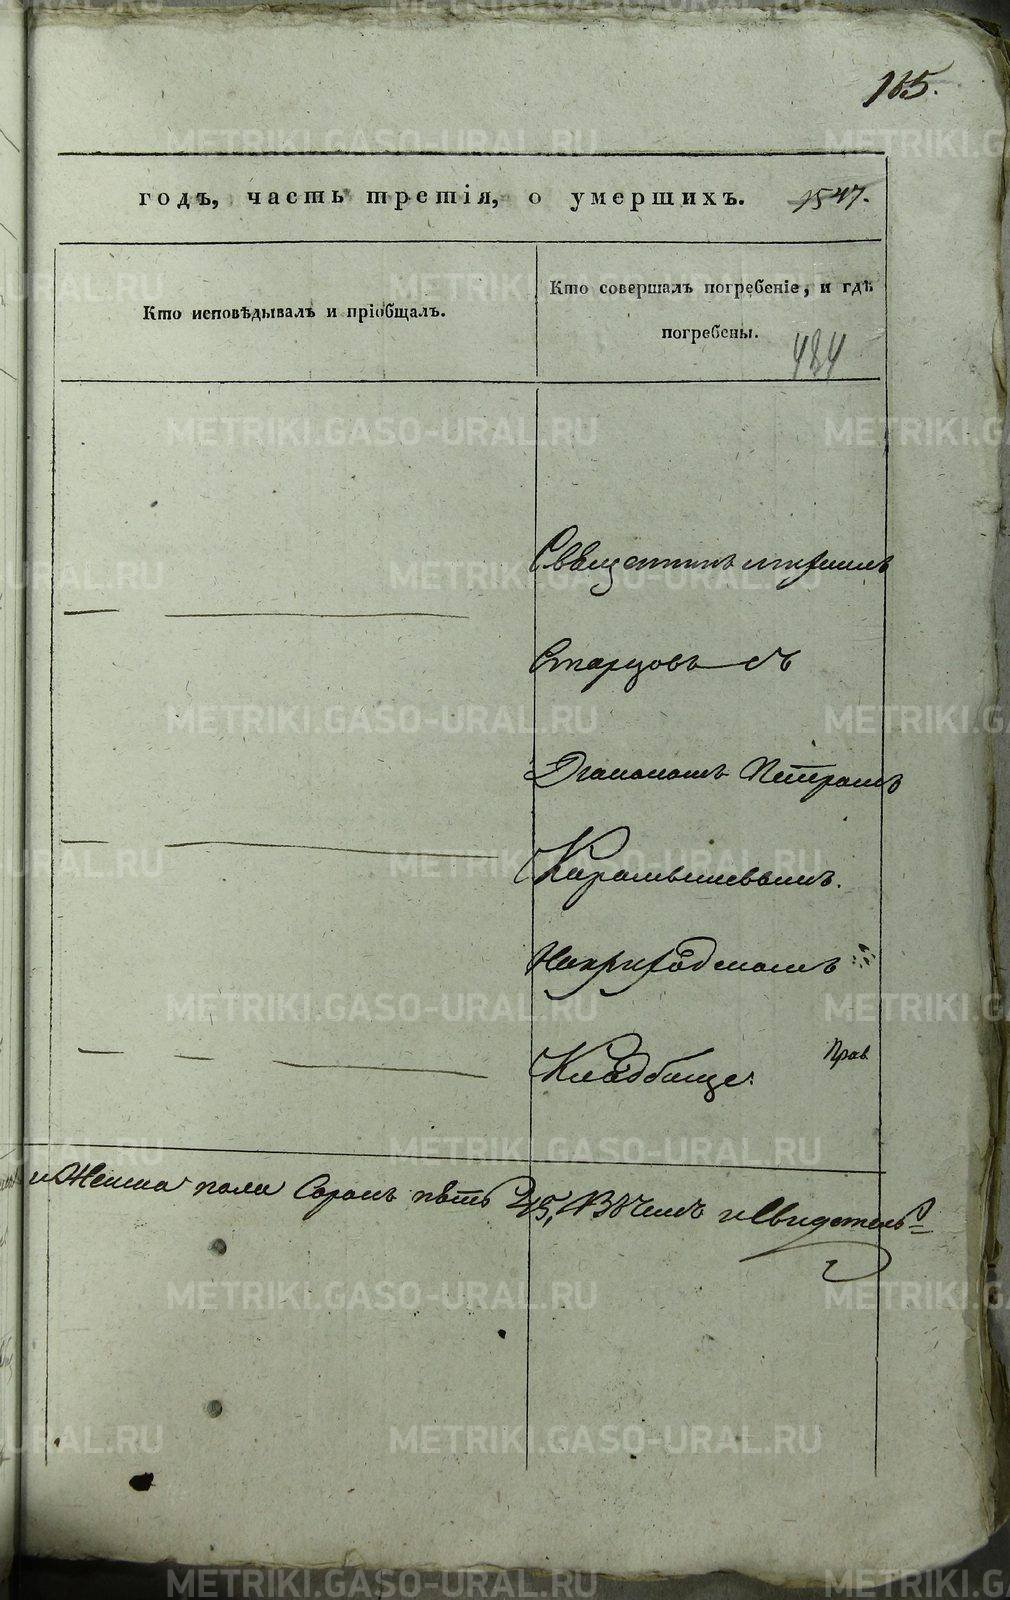 165.
годъ, часть третія, о умершихъ. 1547.
Кто исповѣдывалъ и пріобщалъ.
Кто совершалъ погребеніе, и гдѣ
погребены.
484
Священникъ
Старцовъ съ
Діакономъ Петромъ
Карамышевымъ.
На приходском
Кладбище.
Прав
и Женска пола Сорокъ пять 45, Въ чемъ и Свидетель=
METRIKI.GASO-URAL.RU